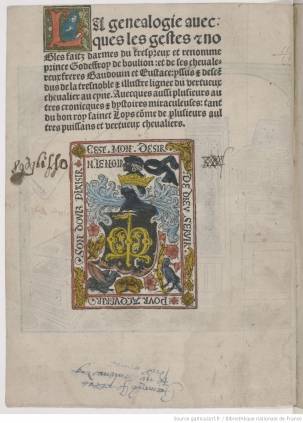 La genealogie auec
ques les gestes ⁊ no
bles faitz darmes du trespreux et renomme
prince Godeffroy de boulion: et de ses cheuale-
reux freres Baudouin et Eustace: yssus ⁊ descē
dus de la tresnoble ⁊ illustre ligne du vertueux
cheualier au cyne. Auecques aussi plusieurs au
tres cronicques ⁊ hystoires miraculeuses: tant
du bon roy sainct Loys cōme de plusieurs aul
tres puissans et vertueux cheualiers.
C'EST MON DESIR
DE DIEV SERVIR
POVR ACQVERIR
SON DOVLX PLAISIR
Source gallica.bnf.fr / Bibliothèque nationale de France